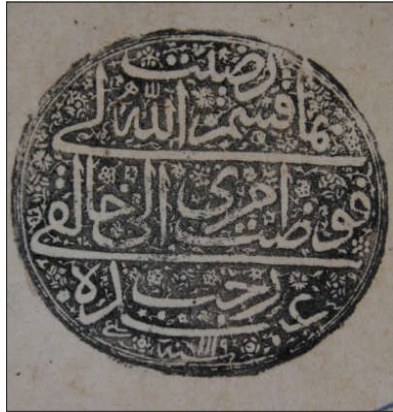 رضيت
بما قسم الله لي
فوضت امري الى خالقي
عبده رجب
سنه